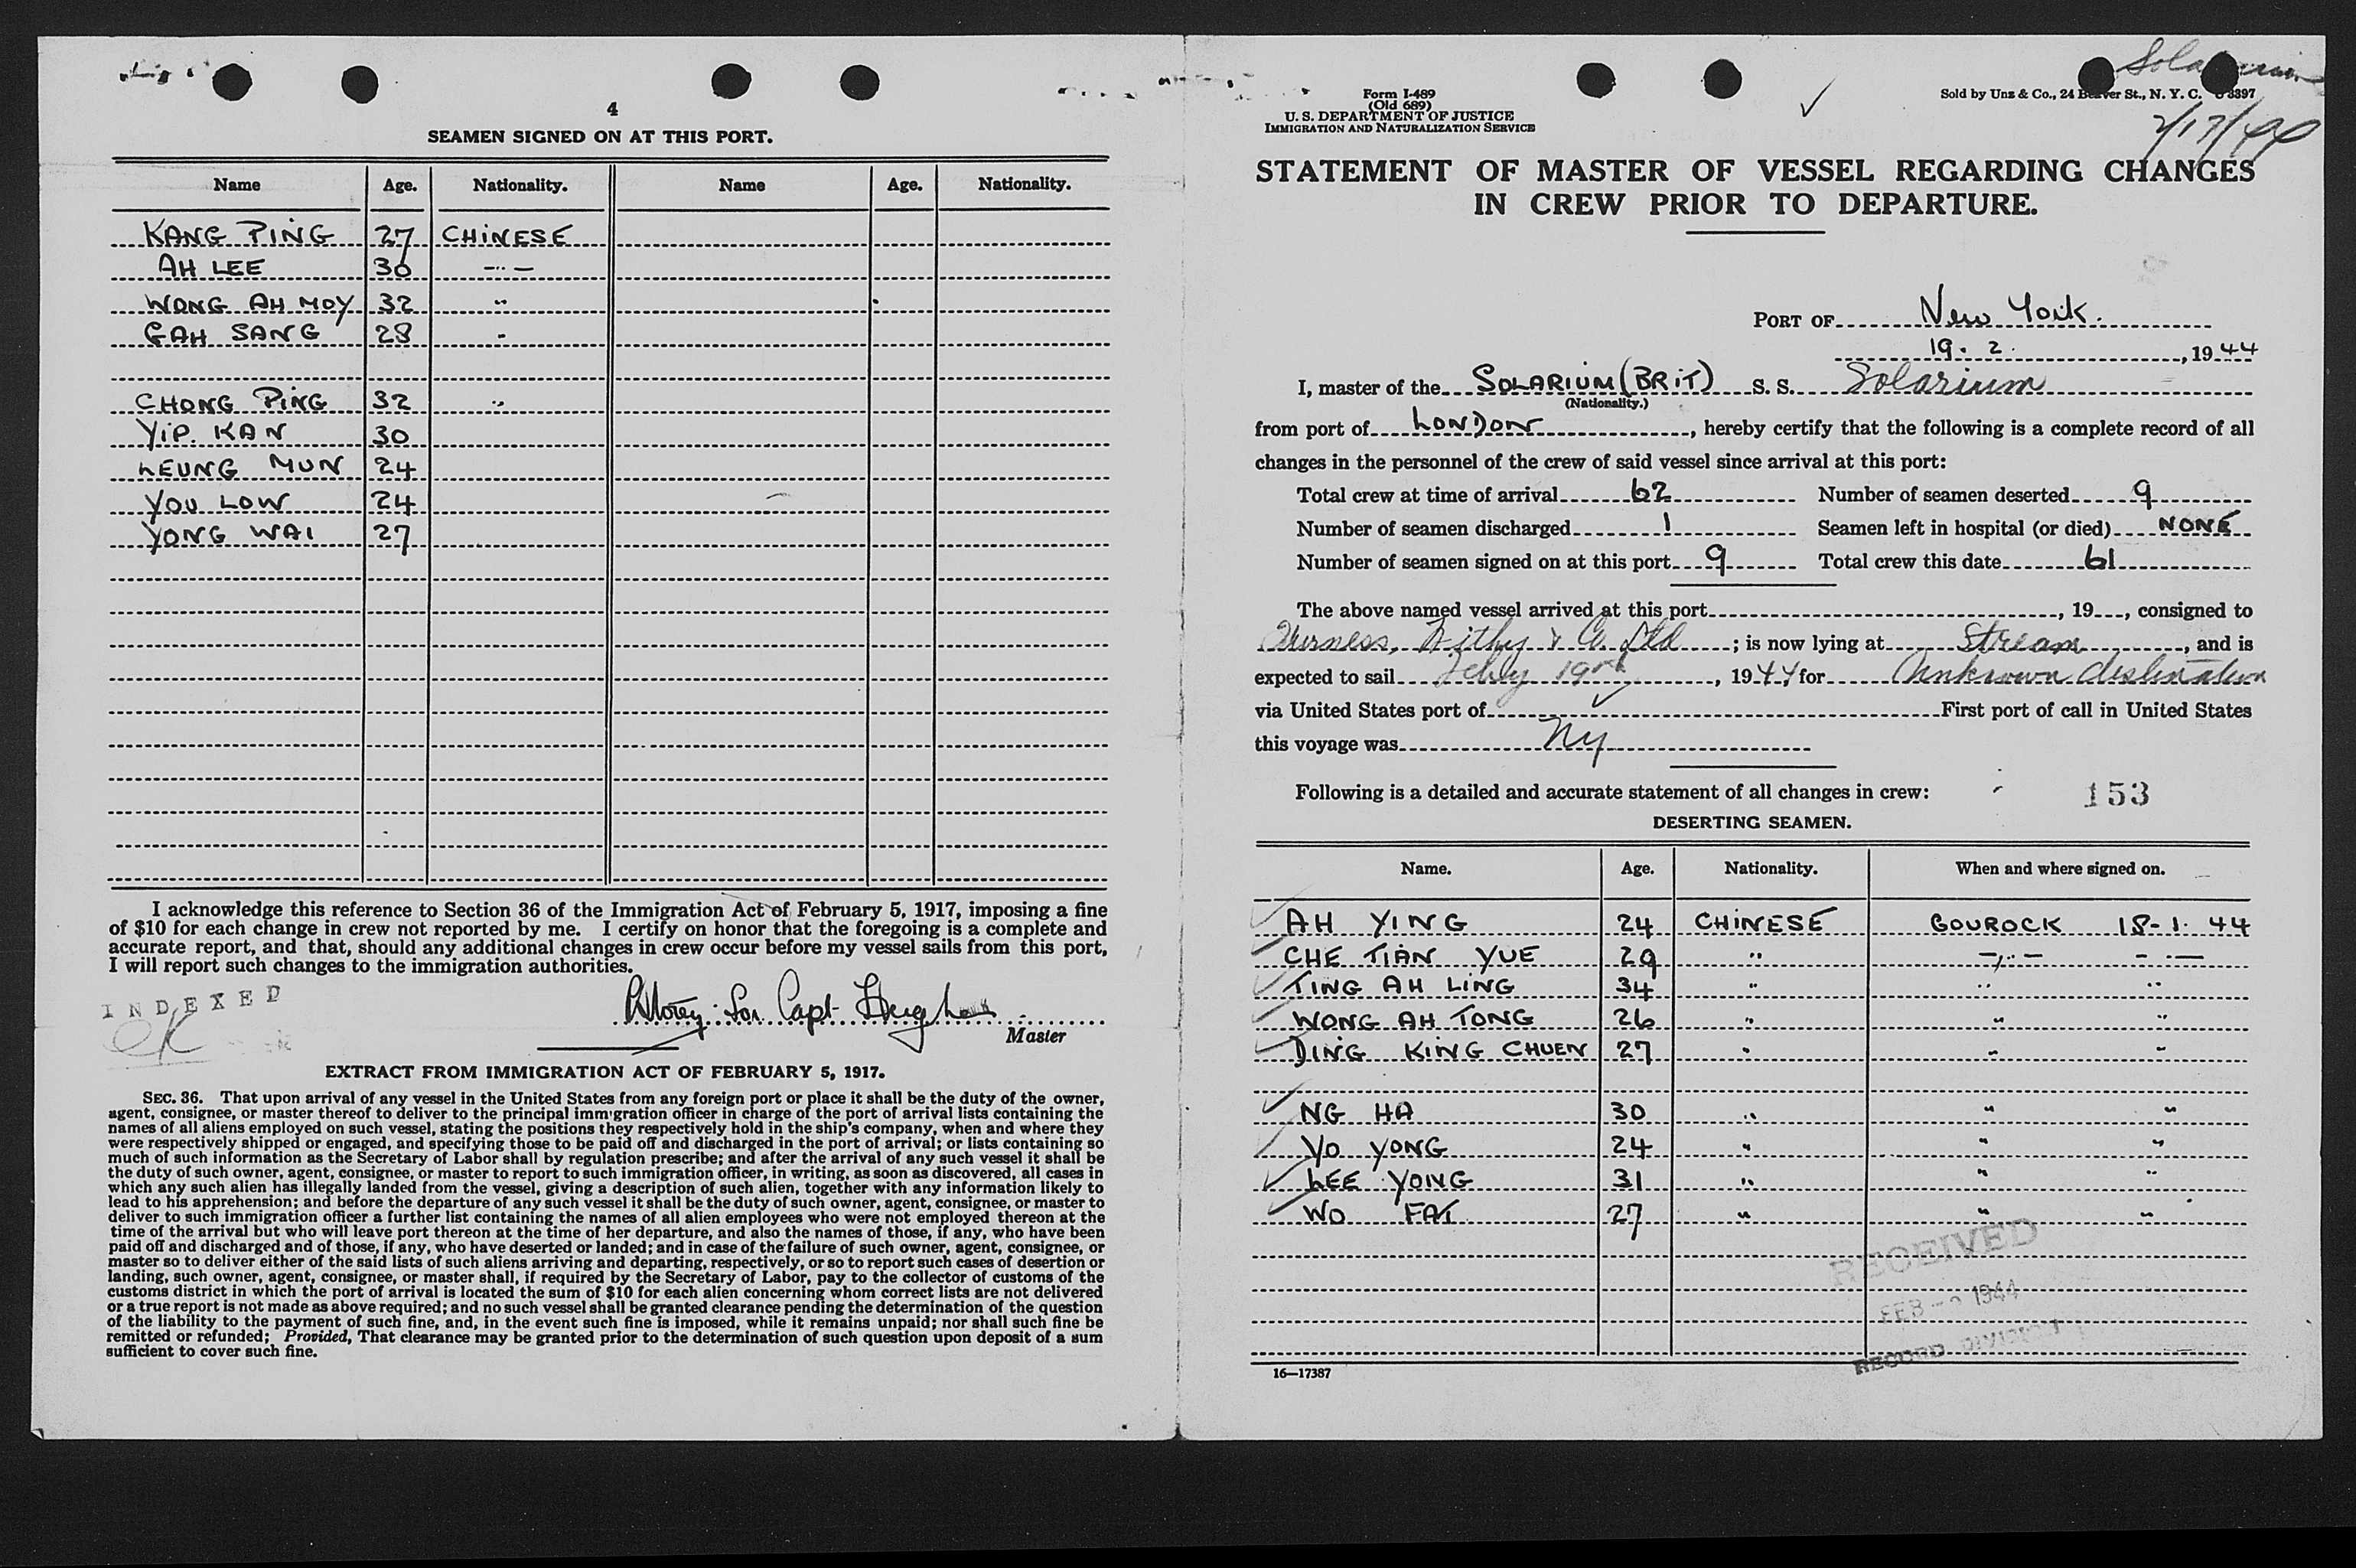 4
SEAMEN SIGNED ON AT THIS PORT.
Name Age. Nationality. Name Age. Nationality.
KANG PING 27 CHINESE
AH LEE 30 -"-
WONG AH MOY 32 "
GAH SANG 28 "
CHONG PING 32 "
YIP. KAN 30
LEUNG MUN 24
YOU LOW 24
YONG WAI 27
I acknowledge this reference to Section 36 of the Immigration Act of February 5, 1917, imposing a fine
of $10 for each change in crew not reported by me. I certify on honor that the foregoing is a complete and
accurate report, and that, should any additional changes in crew occur before my vessel sails from this port,
I will report such changes to the immigration authorities.
INDEXED
OK
for Capt.
Master
EXTRACT FROM IMMIGRATION ACT OF FEBRUARY 5, 1917.
SEC. 36. That upon arrival of any vessel in the United States from any foreign port or place it shall be the duty of the owner,
agent, consignee, or master thereof to deliver to the principal immigration officer in charge of the port of arrival lists containing the
names of all aliens employed on such vessel, stating the positions they respectively hold in the ship's company, when and where they
were respectively shipped or engaged, and specifying those to be paid off and discharged in the port of arrival; or lists containing so
much of such information as the Secretary of Labor shall by regulation prescribe; and after the arrival of any such vessel it shall be
the duty of such owner, agent, consignee, or master to report to such immigration officer, in writing, as soon as discovered, all cases in
which any such alien has illegally landed from the vessel, giving a description of such alien, together with any information likely to
lead to his apprehension; and before the departure of any such vessel it shall be the duty of such owner, agent, consignee, or master to
deliver to such immigration officer a further list containing the names of all alien employees who were not employed thereon at the
time of the arrival but who will leave port thereon at the time of her departure, and also the names of those, if any, who have been
paid off and discharged and of those, if any, who have deserted or landed; and in case of the failure of such owner, agent, consignee, or
master so to deliver either of the said lists of such aliens arriving and departing, respectively, or so to report such cases of desertion or
landing, such owner, agent, consignee, or master shall, if required by the Secretary of Labor, pay to the collector of customs of the
customs district in which the port of arrival is located the sum of $10 for each alien concerning whom correct lists are not delivered
or a true report is not made as above required; and no such vessel shall be granted clearance pending the determination of the question
of the liability to the payment of such fine, and, in the event such fine is imposed, while it remains unpaid; nor shall such fine be
remitted or refunded; Provided, That clearance may be granted prior to the determination of such question upon deposit of a sum
sufficient to cover such fine.
Solarium
2/17/44
Form I-489
(Old 689)
U. S. DEPARTMENT OF JUSTICE
IMMIGRATION AND NATURALIZATION SERVICE
Sold by Unz & Co., 24 Beaver St., N. Y. C. 3397
STATEMENT OF MASTER OF VESSEL REGARDING CHANGES
IN CREW PRIOR TO DEPARTURE.
PORT OF New York.
19. 2. , 1944
I, master of the SOLARIUM (BRIT) S. S. Solarium
(Nationality.)
from port of LONDON, hereby certify that the following is a complete record of all
changes in the personnel of the crew of said vessel since arrival at this port:
Total crew at time of arrival 62 Number of seamen deserted 9
Number of seamen discharged 1 Seamen left in hospital (or died) NONE
Number of seamen signed on at this port 9 Total crew this date 61
The above named vessel arrived at this port , 19 , consigned to
Furness, Withy & Co. Ltd ; is now lying at Stream, and is
expected to sail Feby 19th, 1944 for Unknown destination
via United States port of First port of call in United States
this voyage was NY
Following is a detailed and accurate statement of all changes in crew: 153
DESERTING SEAMEN.
Name. Age. Nationality. When and where signed on.
AH YING 24 CHINESE GOUROCK 18-1. 44
CHE TIAN YUE 29 " -"- -"-
TING AH LING 34 " " "
WONG AH TONG 26 " " "
DING KING CHUEN 27 " " "
NG HA 30 " " "
YO YONG 24 " " "
LEE YONG 31 " " "
WO FAT 27 " " "
RECEIVED
FEB 1944
RECORD DIVISION
16—17387